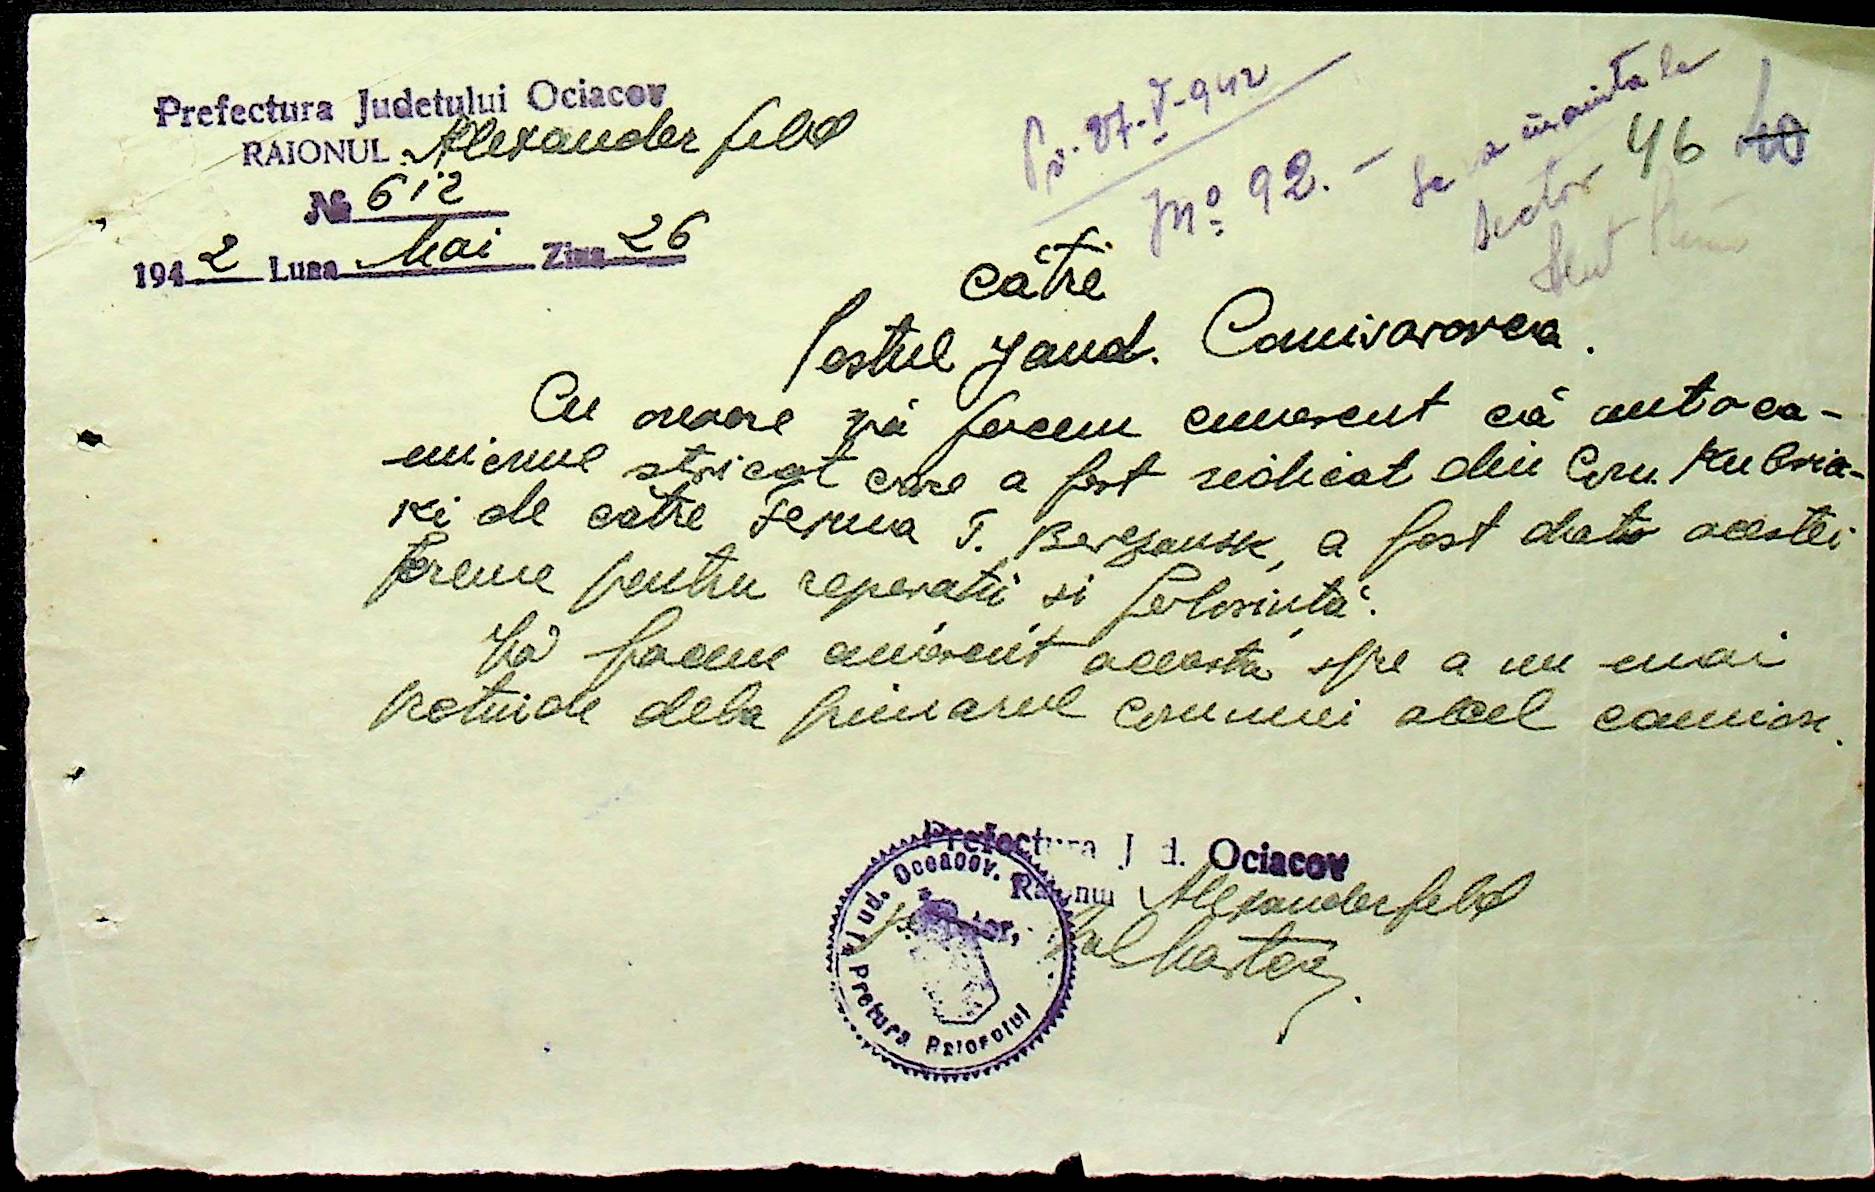 Prefectura Judetului Ociacov
RAIONUL Alexanderfeld
№ 612
1942 Luna Mai Ziua 26
Pr. 27-V-942
Nº 92.-
Se va înainta la
sector
46 40
către
Postul Jand. Comisarovca.
Cu onoare vă facem cunoscut că autoca-
mionul stricat care a fost ridicat din Com. Kubria-
ki de către Ferma T. Berezansk, a fost dată acestei
ferme pentru reperatii si folosintă.
Vă facem cunoscut aceasta spre a nu mai
pretinde dela primarul comunei acel camion.
Prefectura Jud. Ociacov
Raionul Alexanderfeld
Pretor,
Jud. Oceacov.
Pretura Raionului